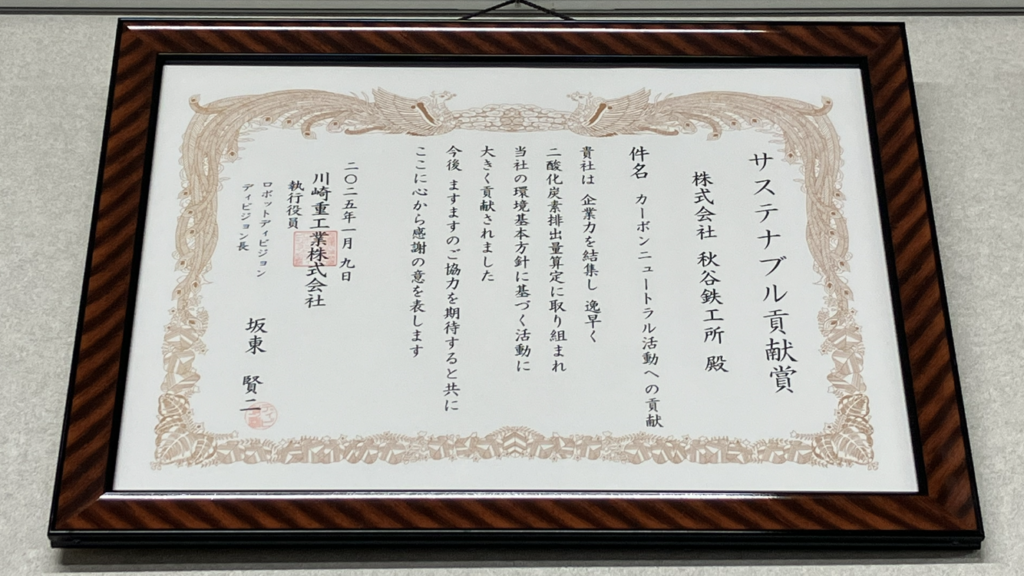 サステナブル貢献賞
株式会社 秋谷鉄工所 殿
件名 カーボンニュートラル活動への貢献
貴社は 企業力を結集し 逸早く
二酸化炭素排出量算定に取り組まれ
当社の環境基本方針に基づく活動に
大きく貢献されました
今後 ますますのご協力を期待すると共に
ここに心から感謝の意を表します
二〇二五年一月九日
川崎重工業株式会社
執行役員
ロボットディビジョン
ディビジョン長
坂東 賢二